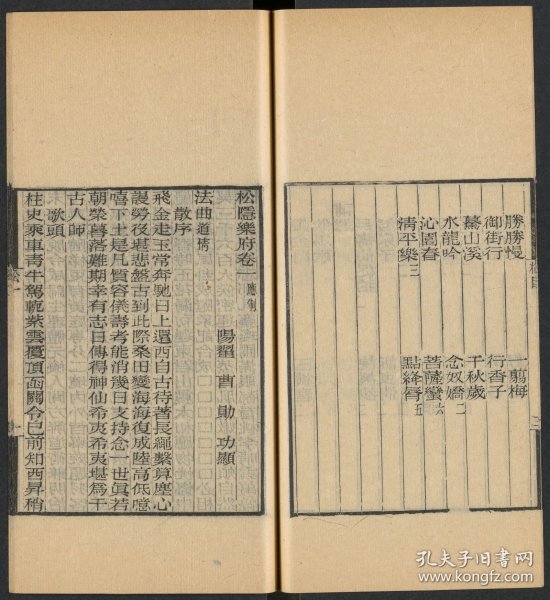 勝勝慢 一翦梅
御街行 行香子
驀山溪 千秋歲
水龍吟 念奴嬌二
沁園春 菩薩蠻六
清平樂三 點絳唇五
松隱樂府卷一應制
陽翟 曹 勛 功顯
法曲道情
散序
飛金走玉常奔馳日上還西自古待著長繩繫算塵心
謾勞役堪悲盤古到此際桑田變海海復成陸高低噫
嘻下土是凡質容儀壽考能消幾日支持念一世眞若
朝榮暮落難期幸有志日傳得神仙希夷希夷堪爲千
古人師
歌頭
柱史乘車青牛駕軛紫雲覆頂函關令已前知西昇稍
松一
孔夫子旧书网
www.kongfz.com